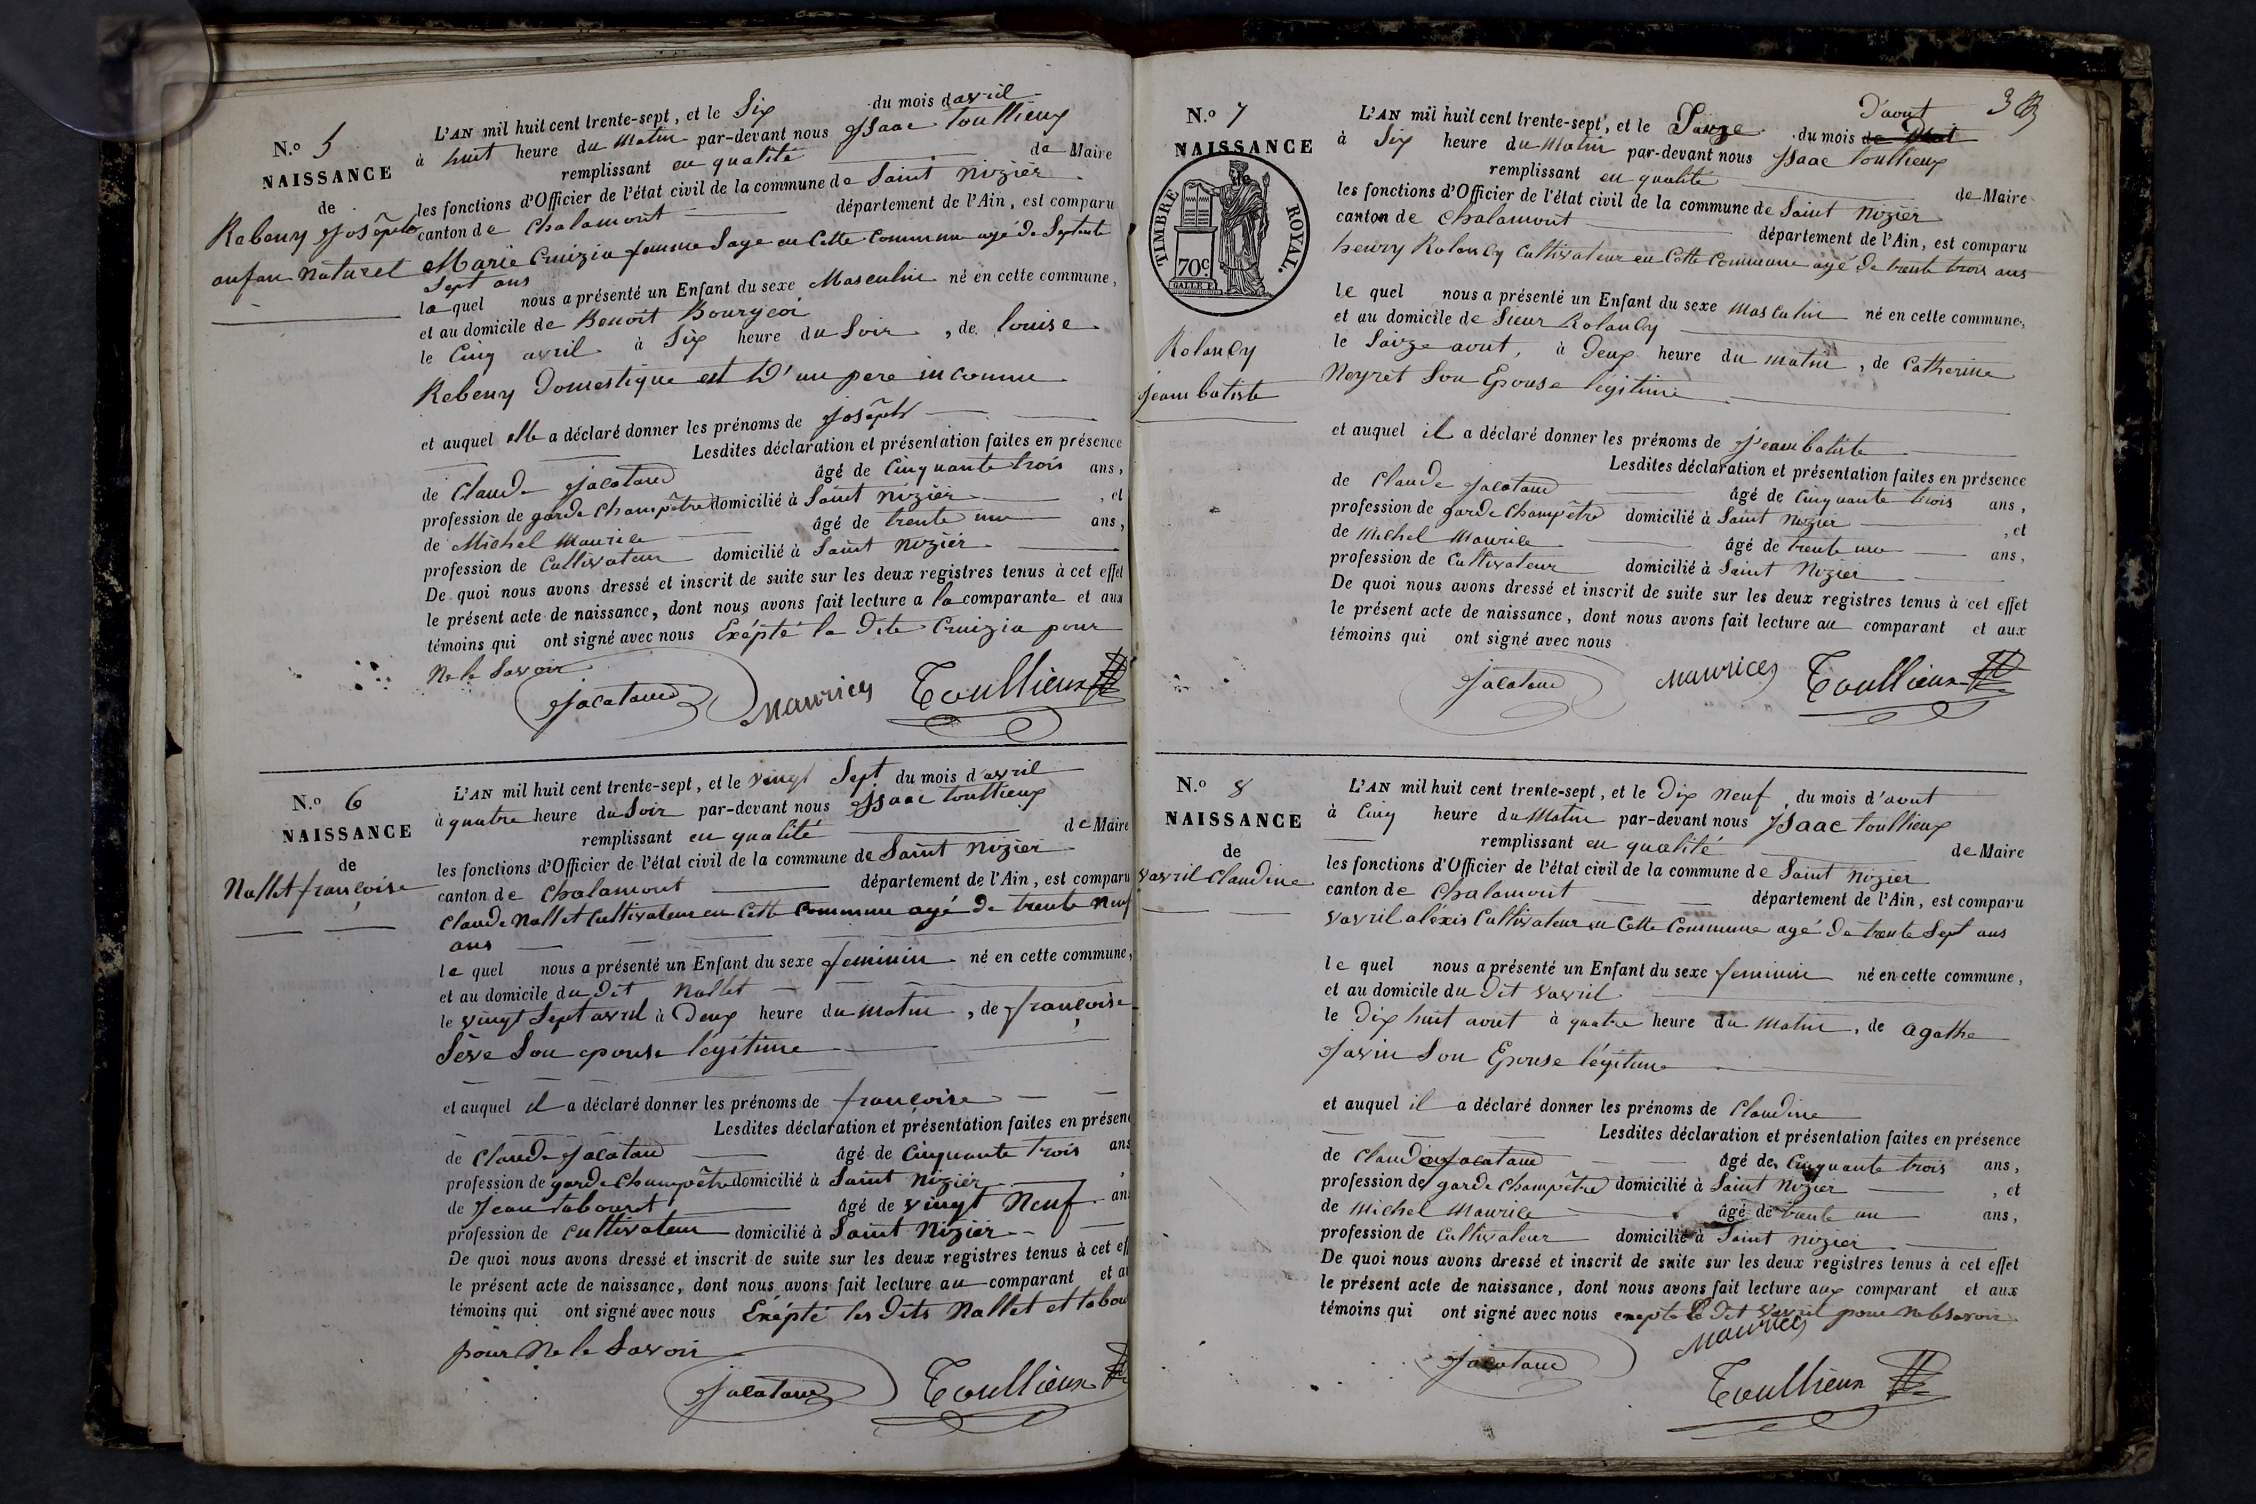 N.o 5
NAISSANCE
de
Rebeny Joseph
enfan naturel
L'AN mil huit cent trente-sept, et le Six du mois d'avril
à huit heure du Matin par-devant nous Isaac toullieux
remplissant en qualité de Maire
les fonctions d'Officier de l'état civil de la commune de Saint nizier
canton de Chalamont département de l'Ain, est comparu
Marie Cruizia femme Sage en Cette Commune agé de Septante
Sept ans
la quel nous a présenté un Enfant du sexe Masculin né en cette commune,
et au domicile de Benoit Bourgeoi
le Cinq avril à Six heure du Soir, de louise
Rebeny Domestique et D'un pere inconnu
et auquel elle a déclaré donner les prénoms de Joseph
Lesdites déclaration et présentation faites en présence
de Claude Jacataud âgé de Cinquante trois ans,
profession de garde Champêtre domicilié à Saint nizier, et
de Michel Maurice âgé de trente un ans,
profession de Cultivateur domicilié à Saint nizier
De quoi nous avons dressé et inscrit de suite sur les deux registres tenus à cet effet
le présent acte de naissance, dont nous avons fait lecture a la comparante et aux
témoins qui ont signé avec nous Exépté la Dite Cruizia pour
Ne le Savoir
Jacataud Maurice Toullieux
N.o 6
NAISSANCE
de
Nallet françoise
L'AN mil huit cent trente-sept, et le vingt Sept du mois d'avril
à quatre heure du Soir par-devant nous Isaac toullieux
remplissant en qualité de Maire
les fonctions d'Officier de l'état civil de la commune de Saint nizier
canton de Chalamont département de l'Ain, est comparu
Claude Nallet Cultivateur en Cette Commune agé de trente Neuf
ans
le quel nous a présenté un Enfant du sexe feminin né en cette commune,
et au domicile du Dit Nallet
le vingt Sept avril à Deux heure du matin, de françoise
Sève Son epouse légitime
et auquel il a déclaré donner les prénoms de françoise
Lesdites déclaration et présentation faites en présen
de Claude Jacataud âgé de Cinquante trois ans
profession de garde Champêtre domicilié à Saint Nizier,
de Jean tabouret âgé de vingt Neuf an
profession de Cultivateur domicilié à Saint Nizier
De quoi nous avons dressé et inscrit de suite sur les deux registres tenus à cet eff
le présent acte de naissance, dont nous avons fait lecture au comparant et au
témoins qui ont signé avec nous Exépté les Dits Nallet et tabou
pour Ne le Savoir
Jacataud Toullieux
N.o 7
NAISSANCE
TIMBRE ROYAL.
70c.
Rolandy
Jean batiste
38
d'aout
L'AN mil huit cent trente-sept, et le Saize du mois de Mai
à Six heure du Matin par-devant nous Isaac toullieux
remplissant en qualité de Maire
les fonctions d'Officier de l'état civil de la commune de Saint nizier
canton de Chalamont département de l'Ain, est comparu
henry Rolandy Cultivateur en Cette Commune agé de trente trois ans
le quel nous a présenté un Enfant du sexe masculin né en cette commune,
et au domicile de Sieur Rolandy
le Saize aout, à Deux heure du matin, de Catherine
Neyret Son Epouse legitime
et auquel il a déclaré donner les prénoms de Jean batiste
Lesdites déclaration et présentation faites en présence
de Claude Jacataud âgé de Cinquante trois ans,
profession de garde Champêtre domicilié à Saint Nizier, et
de Michel Maurice âgé de trente un ans,
profession de Cultivateur domicilié à Saint Nizier
De quoi nous avons dressé et inscrit de suite sur les deux registres tenus à cet effet
le présent acte de naissance, dont nous avons fait lecture au comparant et aux
témoins qui ont signé avec nous
Jacataud Maurice Toullieux
N.o 8
NAISSANCE
de
vavril Claudine
L'AN mil huit cent trente-sept, et le Dix Neuf du mois d'aout
à Cinq heure du Matin par-devant nous Isaac toullieux
remplissant en qualité de Maire
les fonctions d'Officier de l'état civil de la commune de Saint Nizier
canton de Chalamont département de l'Ain, est comparu
vavril aléxis Cultivateur en Cette Commune agé de trente Sept ans
le quel nous a présenté un Enfant du sexe feminin né en cette commune,
et au domicile du Dit vavril
le Dix huit aout à quatre heure du Matin, de agathe
Javin Son Epouse légitime
et auquel il a déclaré donner les prénoms de Claudine
Lesdites déclaration et présentation faites en présence
de Claude Jacataud âgé de Cinquante trois ans,
profession de garde Champêtre domicilié à Saint Nizier, et
de Michel Maurice âgé de trente un ans,
profession de Cultivateur domicilié à Saint nizier
De quoi nous avons dressé et inscrit de suite sur les deux registres tenus à cet effet
le présent acte de naissance, dont nous avons fait lecture aux comparant et aux
témoins qui ont signé avec nous exepté le Dit vavril pour ne le savoir
Maurice
Jacataud
Toullieux